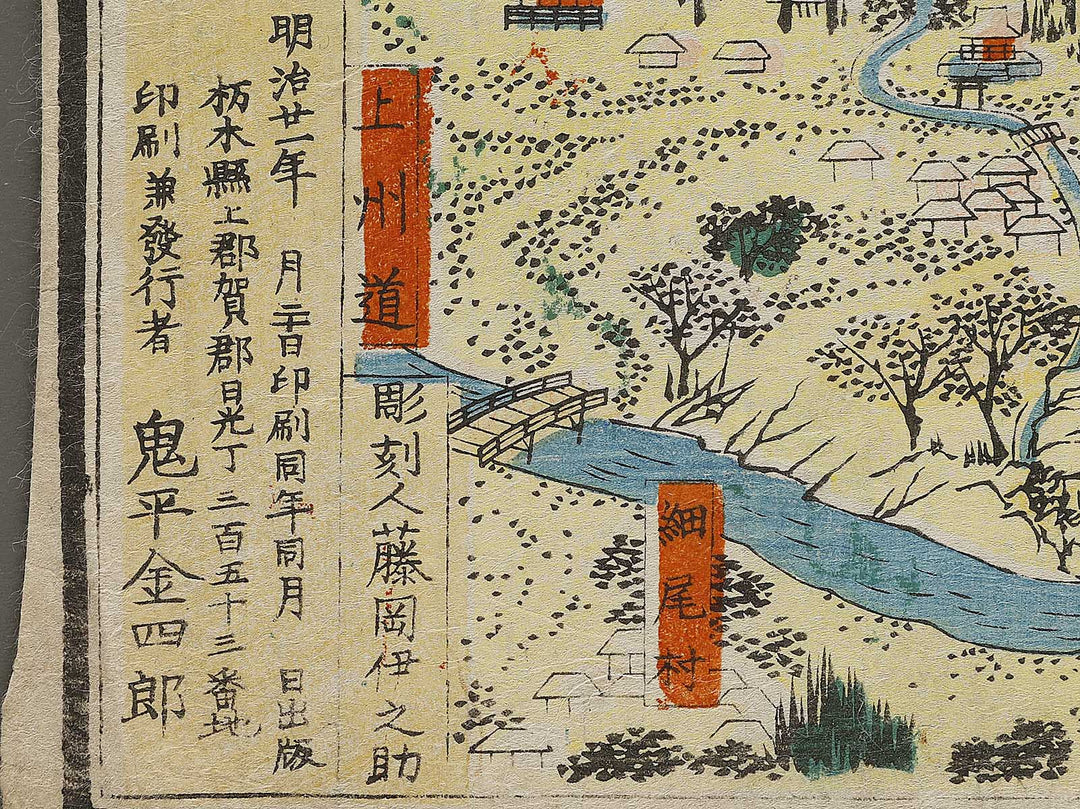 細尾村
上州道
彫刻人藤岡伊之助
明治廿一年 月二十日印刷同年同月 日出版
杤木縣上郡賀郡日光丁二百五十三番地
印刷兼發行者 鬼平金四郎